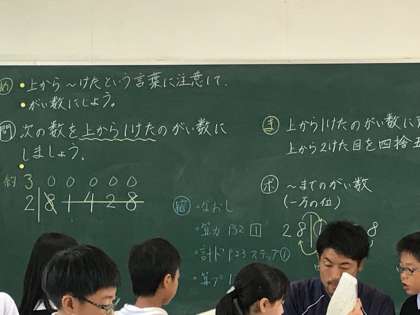 め ・上から〜けたという言葉に注意して、
・がい数にしよう。
問 次の数を上から1けたのがい数に
しましょう。
約 300000
281428
ま 上から1けたのがい数に
上から2けた目を四捨五
ポ 〜までのがい数
(一万の位)
28 8
・なおし
・算力 P32 1
・計ド P23 ステップ①
・算プ